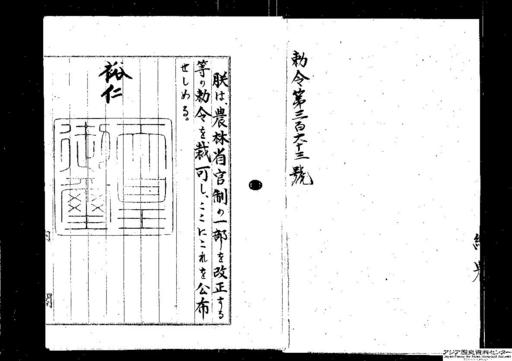 勅令第三百六十三號
朕は、農林省官制の一部を改正する
等の勅令を裁可し、ここにこれを公布
せしめる。
裕仁
天皇
御璽
内閣
アジア歴史資料センター